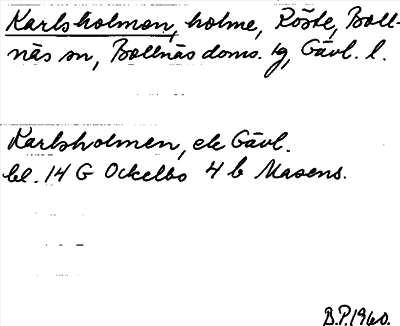 Karlsholmen, holme, Röste, Boll-
näs sn, Bollnäs doms. tg, Gävl. l.
Karlsholmen, ek Gävl.
bl. 14 G Ockelbo 4 b Masens.
B.P. 1960.